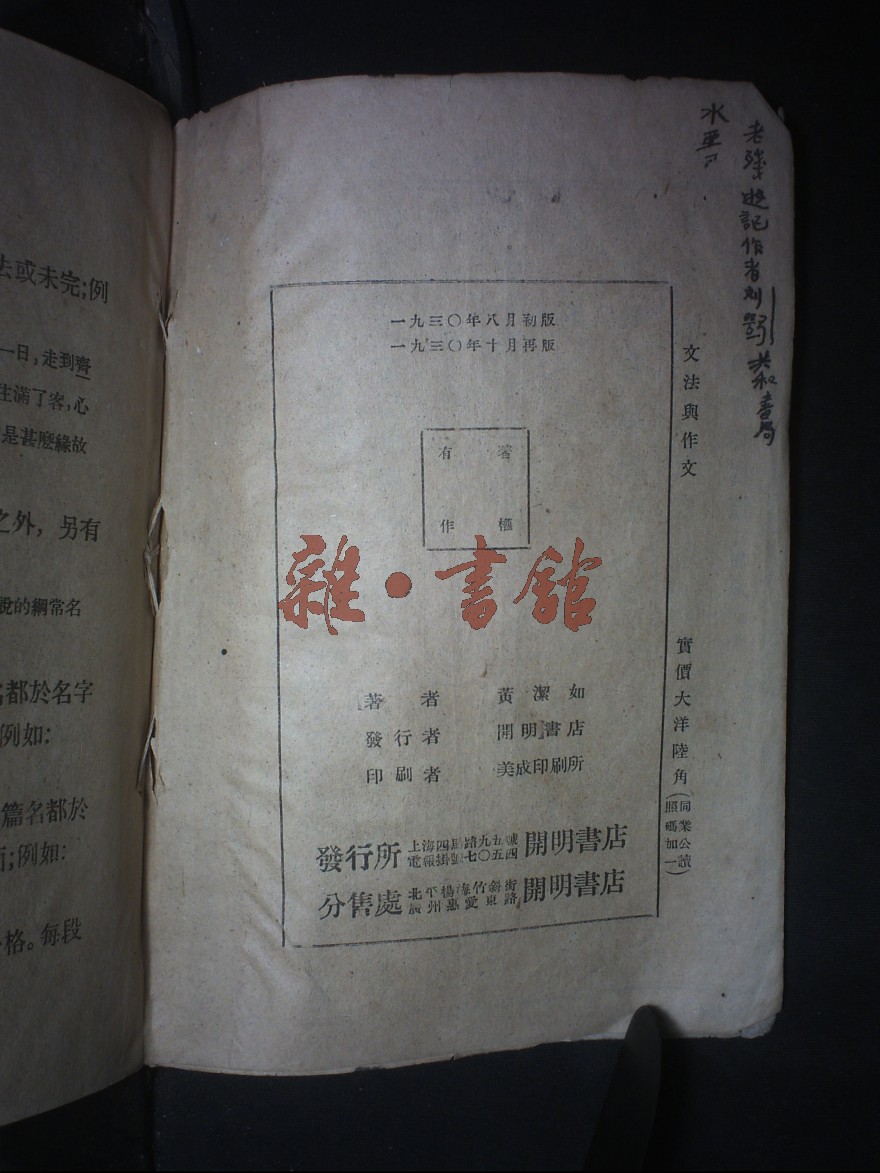 老殘遊記作者刘鶚 共和書局
水
文法與作文
實價大洋陸角(同業公議照碼加一)
一九三〇年八月初版
一九三〇年十月再版
有著
作權
雜·書館
著者 黃潔如
發行者 開明書店
印刷者 美成印刷所
發行所 上海四馬路九五號 電報掛號七〇五四 開明書店
分售處 北平楊梅竹斜街 廣州惠愛東路 開明書店
法或未完;例
一日,走到齊
生滿了客,心
是甚麼緣故
之外,另有
說的綱常名
名都於名字
例如:
篇名都於
面;例如:
格。每段